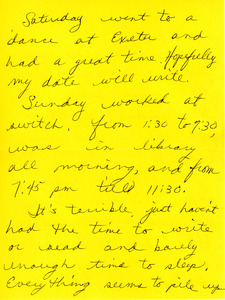 Saturday went to a
dance at Exeter and
had a great time. Hopefully
my date will write.
Sunday worked at
switch. from 1:30 to 7:30,
was in library
all morning, and from
7:45 pm till 11:30.
It's terrible, just haven't
had the time to write
or read and barely
enough time to sleep.
Everything seems to pile up